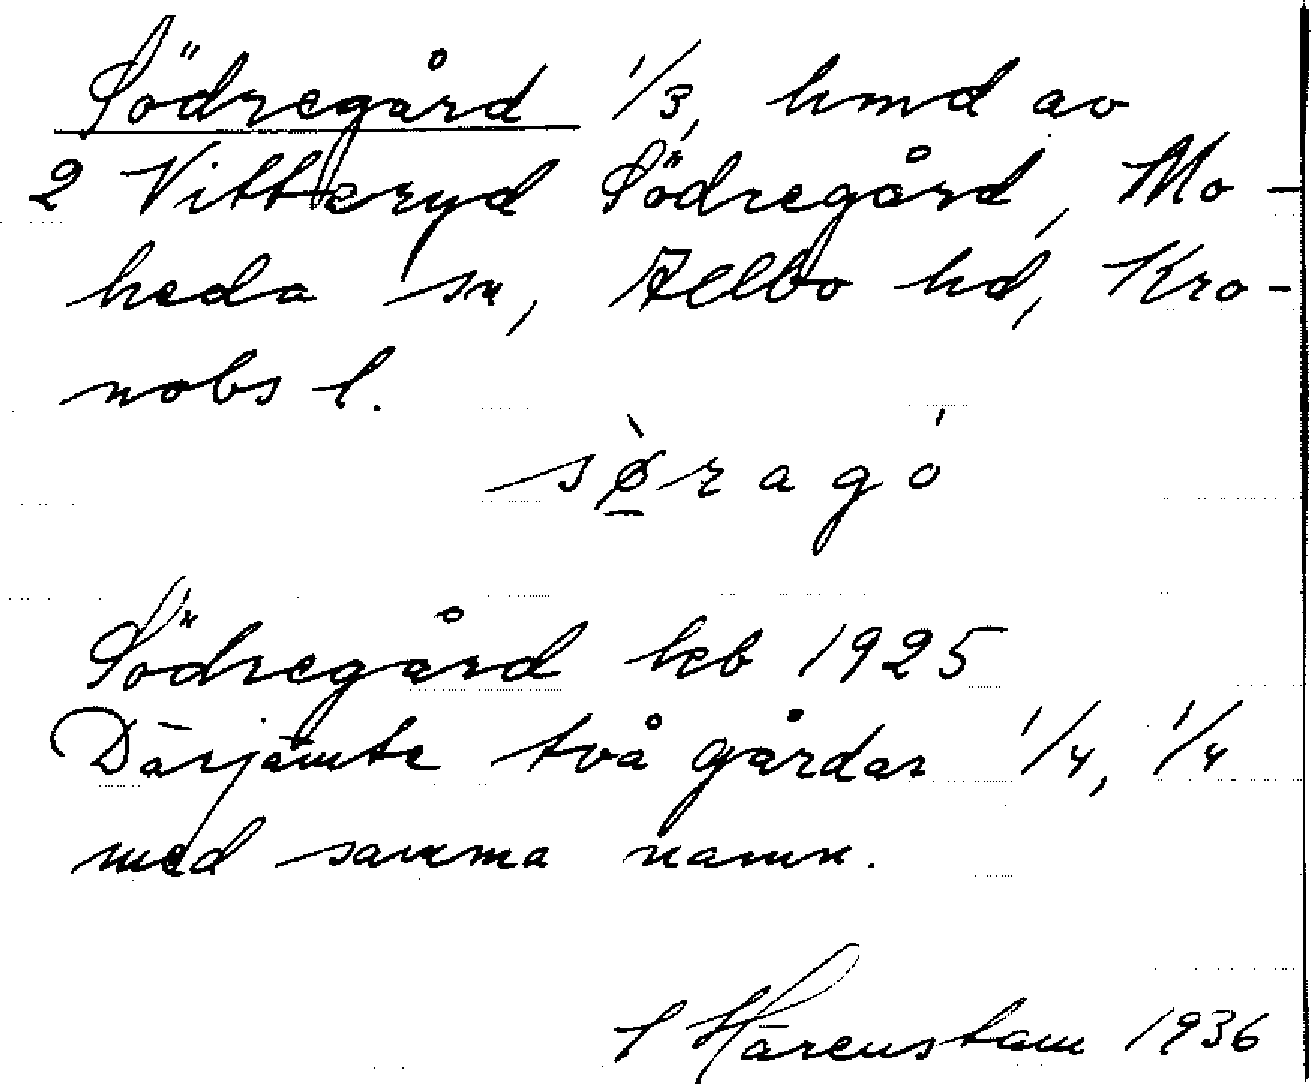 Södregård 1/3, hmd av
2 Vitteryd Södregård, Mo-
heda sn, Allbo hd, Kro-
nobs l.
sø̱̀ragó
Södregård keb 1925
Därjämte två gårdar 1/4, 1/4
med samma namn.
f Härenstam 1936